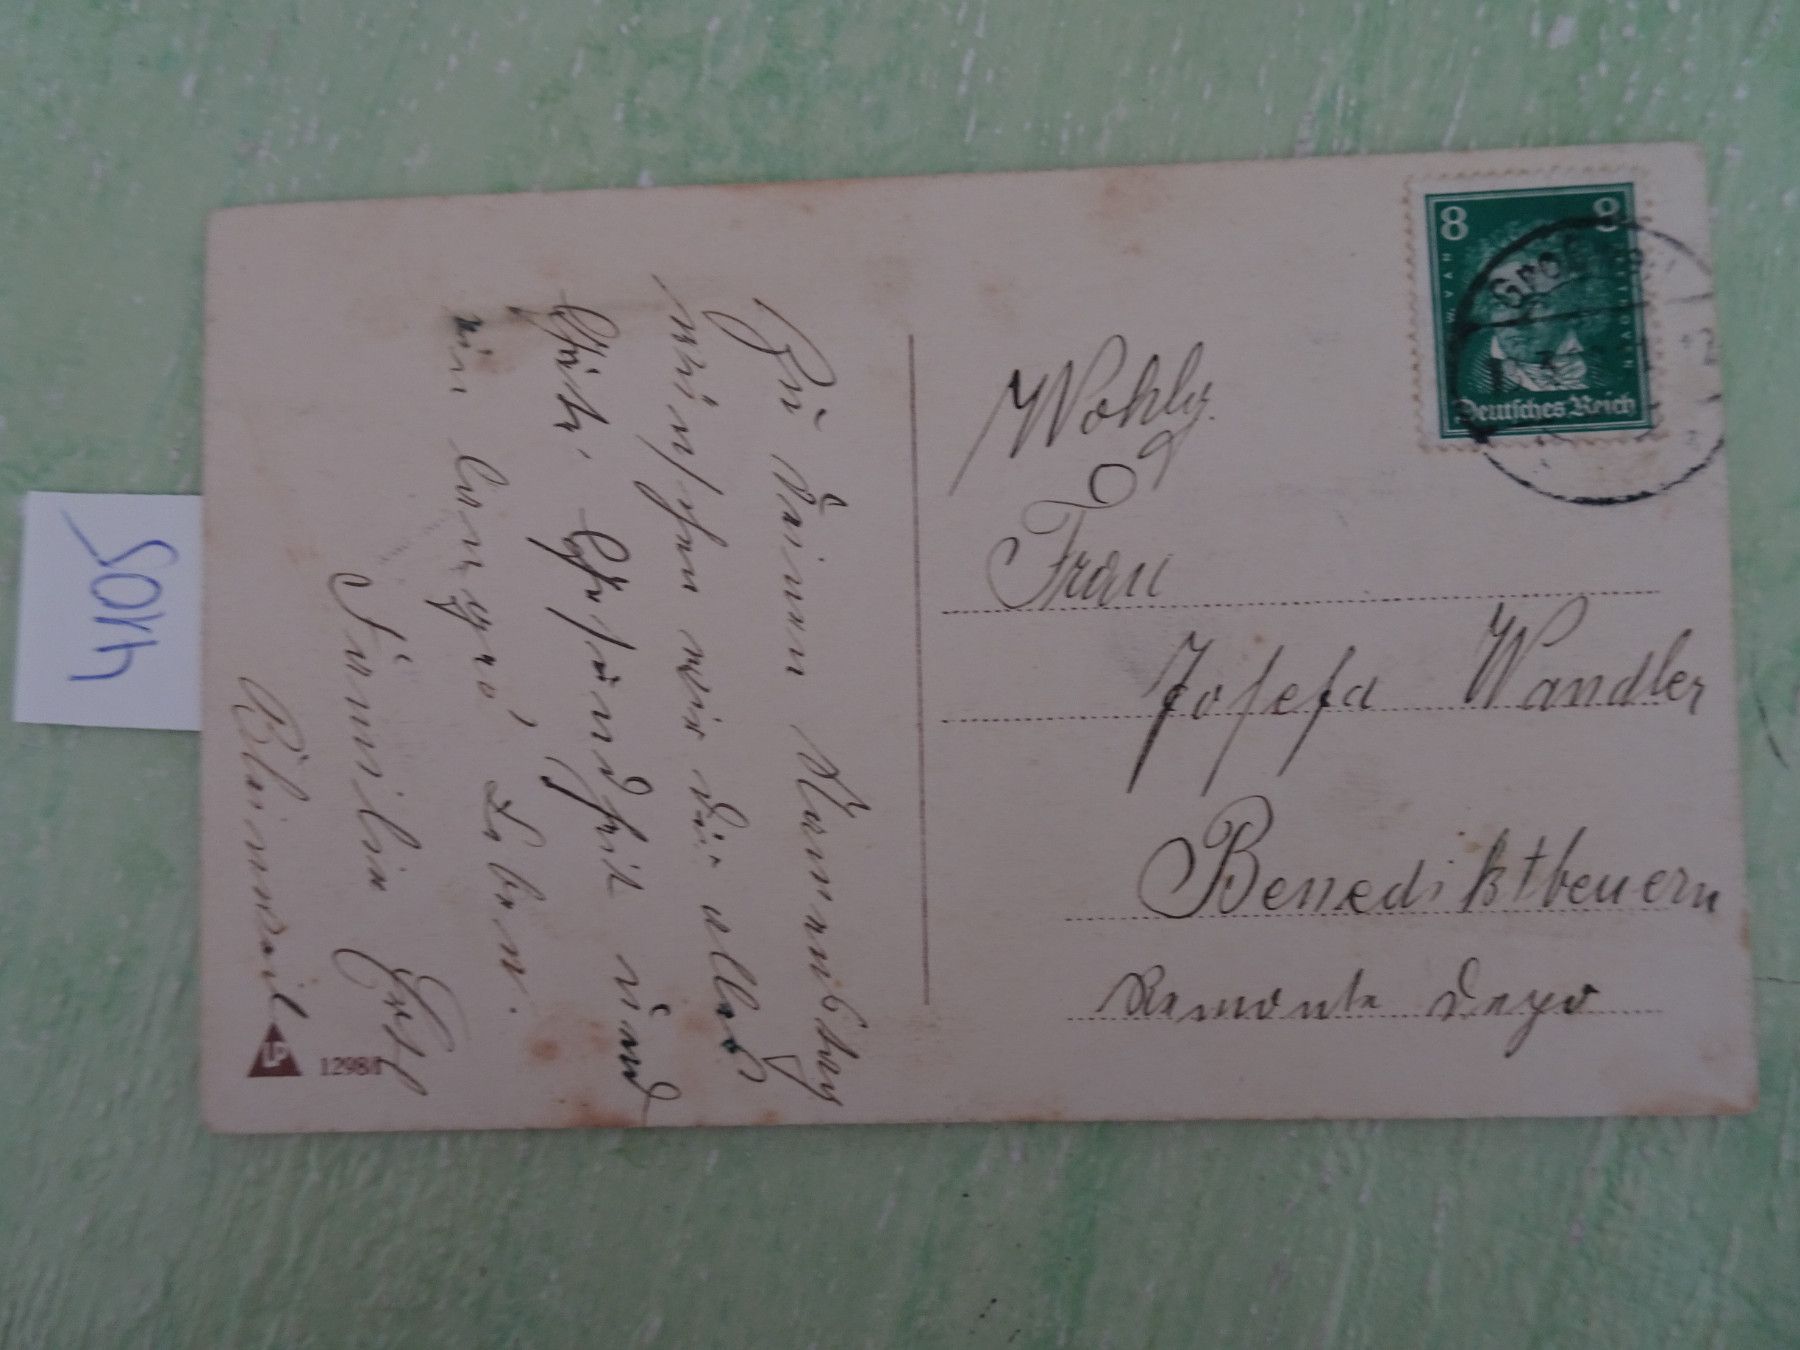 Zu deinem Namenstag
wünschen wir dir alles
Gute, Gesundheit und
ein langes Leben.
Familie
Wohlg.
Frau
Josefa Wandler
Benediktbeuern
Remonte Depo
8 8
L. W. VAN BEETHOVEN
Deutsches Reich
LP 1298/I
4105